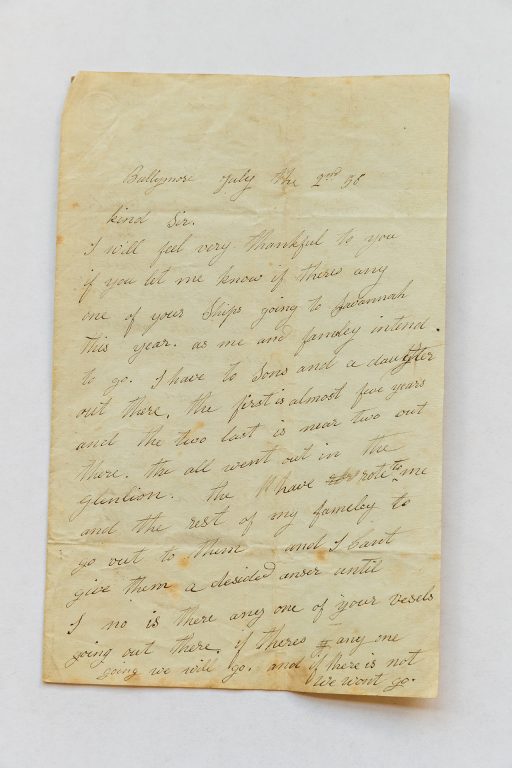 Ballymore July the 2nd 58
kind Sir.
I will feel very thankful to you
if you let me know if theres any
one of your Ships going to Savannah
this year. as me and famley intend
to go. I have to Sons and a daughter
out there. the first is almost five years
and the two last is near two out
there. the all went out in the
Glenlion. the have rote to me
and the rest of my fameley to
go out to them and I cant
give them a desided anser until
I no is there any one of your vesels
going out there. if theres any one
going we will go. and if there is not
we wont go.